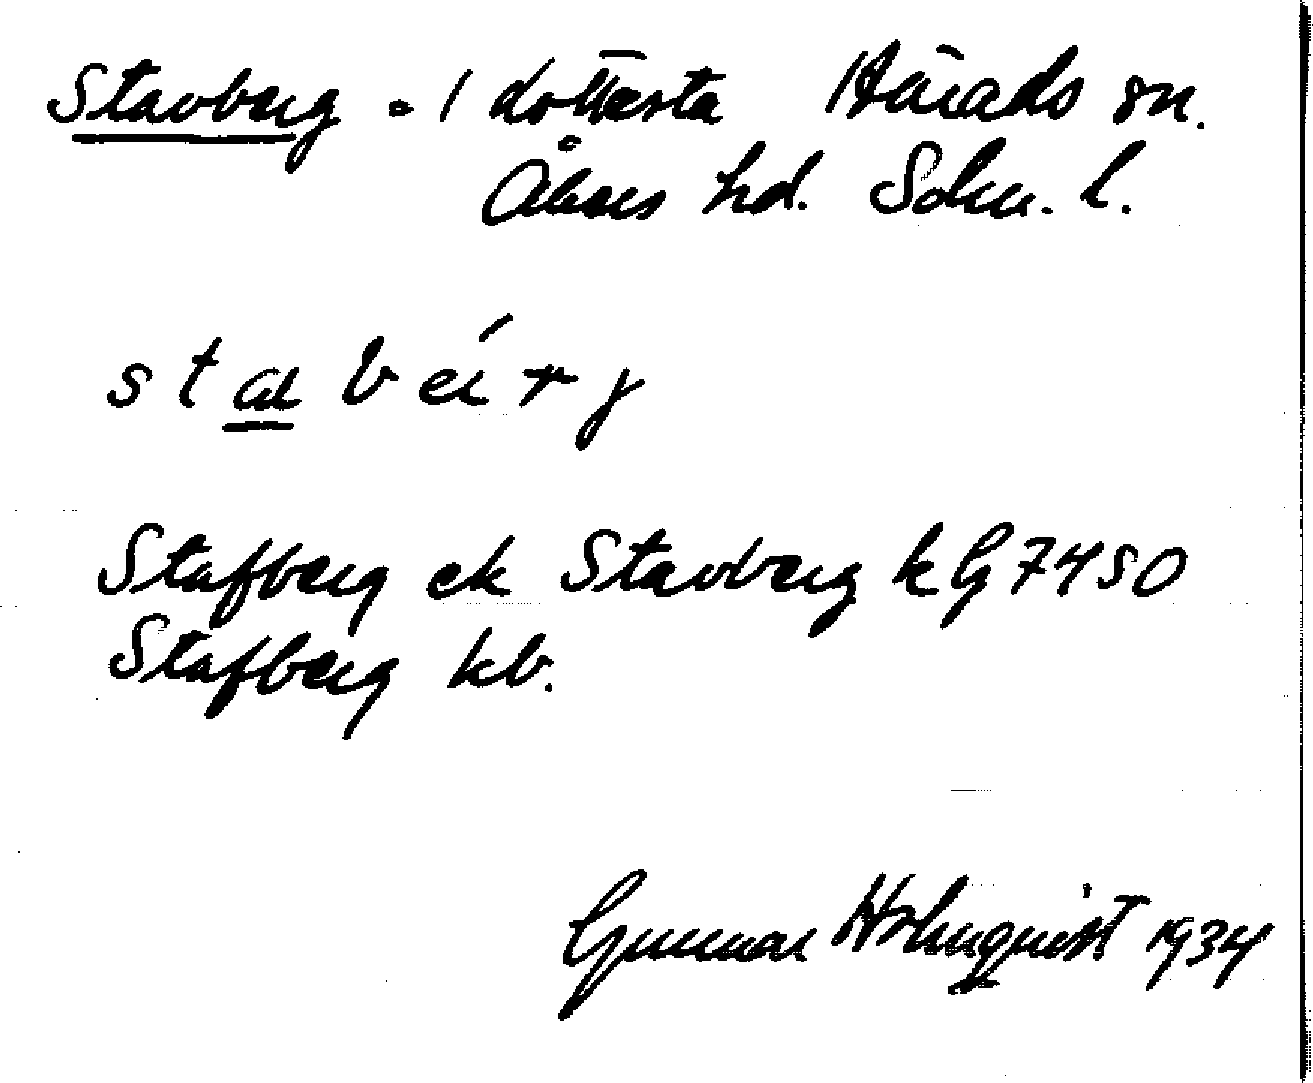 Stavberg . / Lottersta Härads sn.
Åkers hd. Södm. l.
stabärj
Stafberg ek Stavberg k G 7450
Stafberg kb.
Gunnar Holmquist 1934